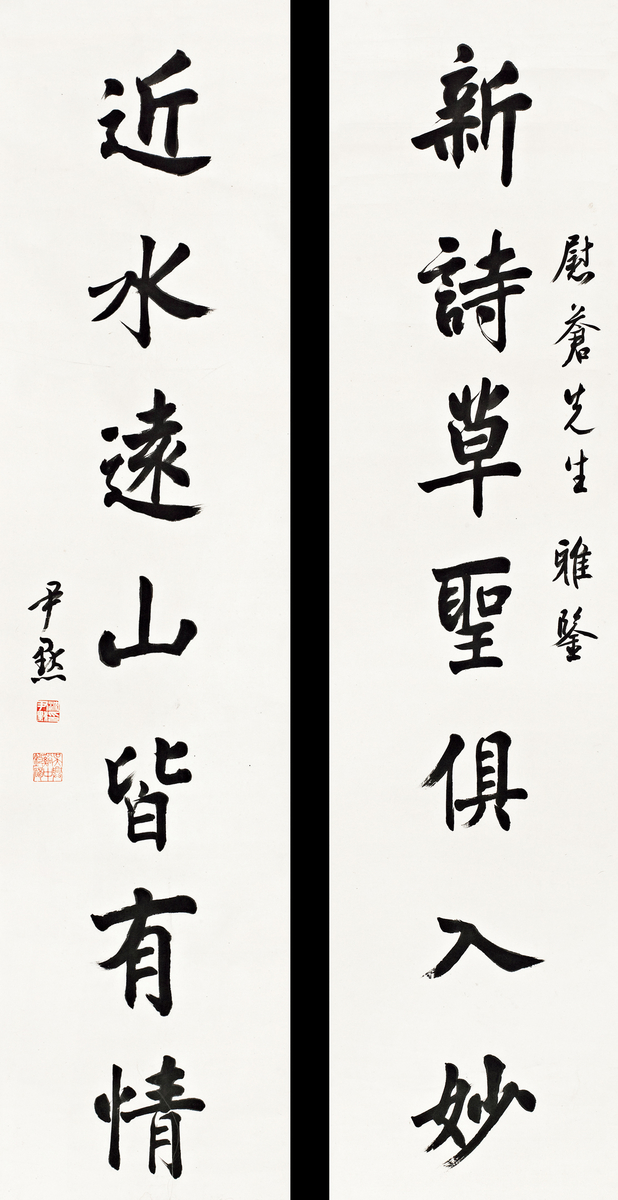 慰蒼先生 雅鑒
新詩草聖俱入妙
近水遠山皆有情
尹默